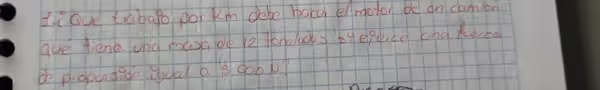 1.¿Que trabajo por Km debe hacer el motor de un camion
que tiene una masa de 12 toneladas y ejerce una fuerza
de propulsión igual a 3 000 N?